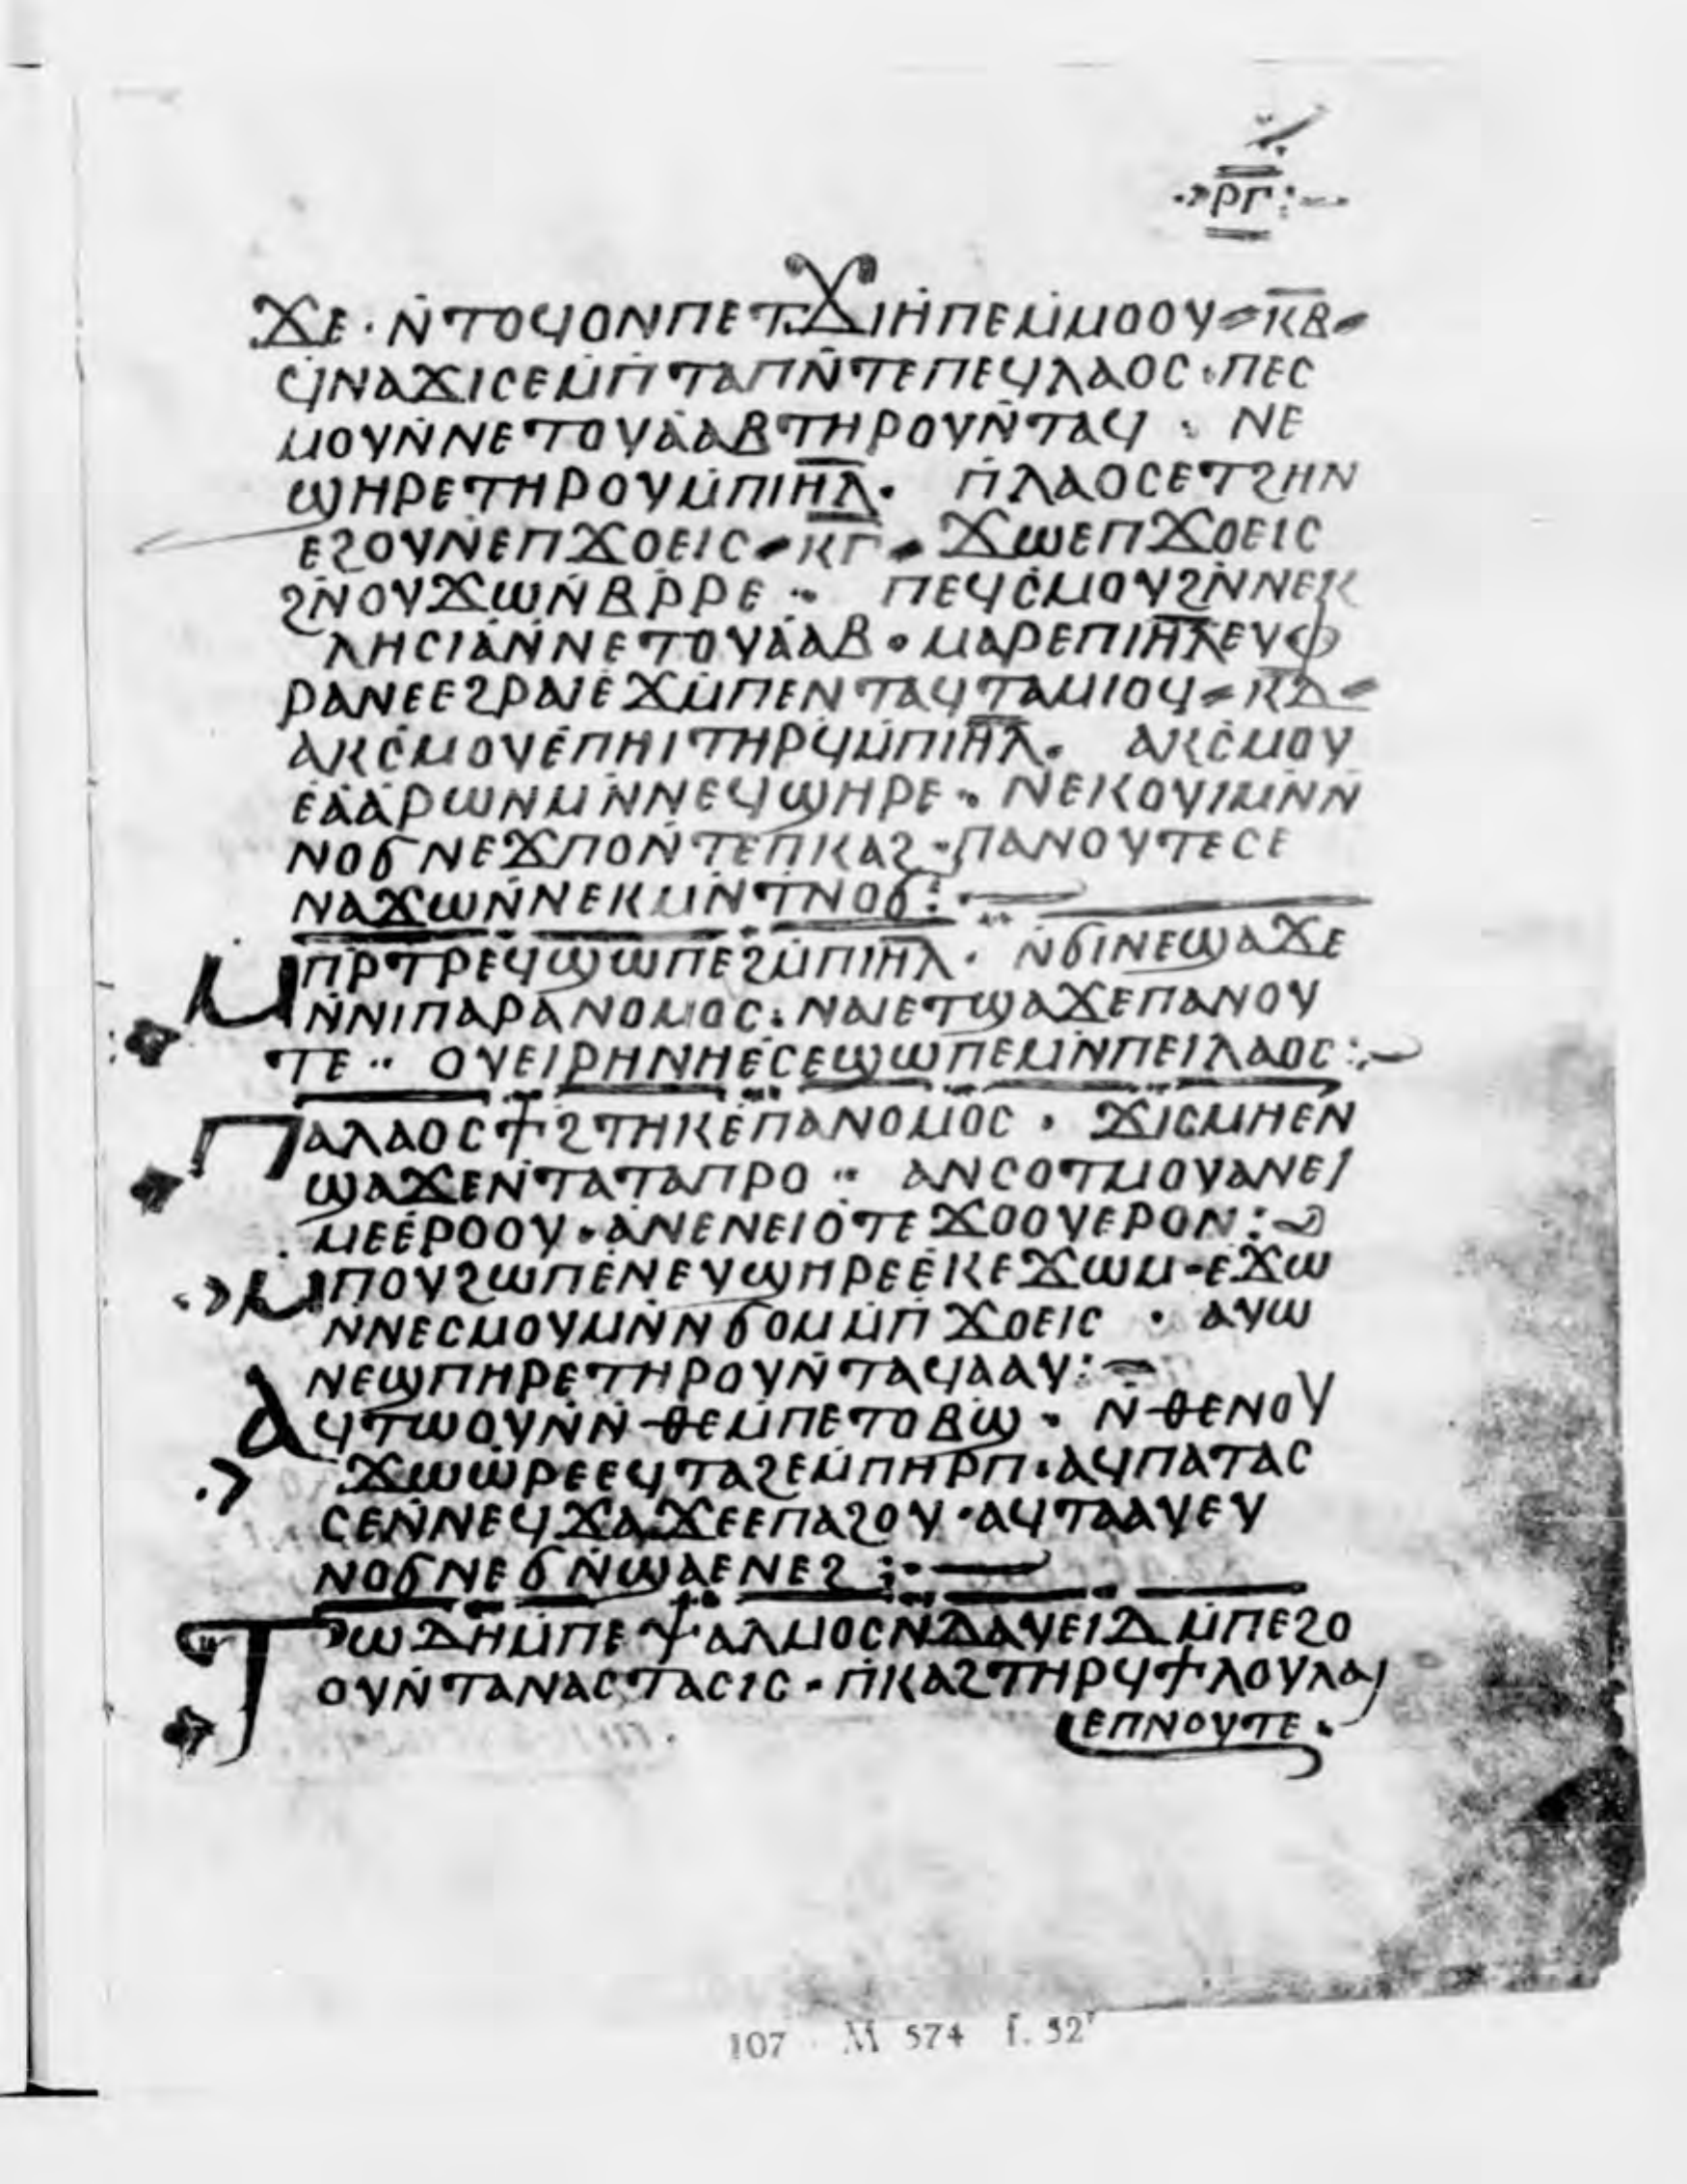 ·>ⲣⲅ:–
ϫⲉ · ⲛ̇ⲧⲟϥⲟⲛⲡⲉⲧϫⲓⲙ̇ⲡⲉⲙ̇ⲙⲟⲟⲩ ⲕ̅ⲃ̅
ϥⲛⲁϫⲓⲥⲉⲙ̇ⲡ̇ⲧⲁⲡⲛ̇ⲧⲉⲡⲉϥⲗⲁⲟⲥ · ⲡⲉⲥ
ⲙⲟⲩⲛ̇ⲛⲉⲧⲟⲩⲁ̇ⲁⲃⲧⲏⲣⲟⲩⲛ̇ⲧⲁϥ · ⲛⲉ
ϣⲏⲣⲉⲧⲏⲣⲟⲩⲙ̇ⲡⲓⲏ̅ⲗ̅ · ⲡ̇ⲗⲁⲟⲥⲉⲧϩⲏⲛ
ⲉϩⲟⲩⲛⲉⲡϫⲟⲉⲓⲥ ⲕ̅ⲅ̅ ϫⲱⲉⲡϫⲟⲉⲓⲥ
ϩⲛ̇ⲟⲩϫⲱⲛ̇ⲃⲣ̇ⲣⲉ · ⲡⲉϥⲥ̇ⲙⲟⲩϩⲛ̇ⲛⲉⲕ
ⲗⲏⲥⲓⲁⲛ̇ⲛⲉⲧⲟⲩⲁ̇ⲁⲃ · ⲙⲁⲣⲉⲡⲓⲏ̅ⲗ̅ⲉⲩⲫ
ⲣⲁⲛⲉⲉϩⲣⲁⲓⲉ̇ϫⲙ̇ⲡⲉⲛⲧⲁϥⲧⲁⲙⲓⲟϥ ⲕ̅ⲇ̅
ⲁⲕⲥ̇ⲙⲟⲩⲉ̇ⲡⲏⲓⲧⲏⲣϥⲙ̇ⲡⲓⲏ̅ⲗ̅ · ⲁⲕⲥ̇ⲙⲟⲩ
ⲉ̇ⲁ̇ⲁ̇ⲣⲱⲛⲙⲛ̇ⲛⲉϥϣⲏⲣⲉ · ⲛⲉⲕⲟⲩⲓⲙⲛ̇ⲛ
ⲛⲟϭⲛⲉϫⲡⲟⲛ̇ⲧⲉⲡ̇ⲕⲁϩ · ⲡⲁⲛⲟⲩⲧⲉⲥⲉ
ⲛⲁϫⲱⲛ̇ⲛⲉⲕⲙⲛ̇ⲧⲛⲟϭ :–
ⲙⲡ̇ⲣⲧⲣⲉϥϣⲱⲡⲉϩⲙ̇ⲡⲓⲏ̅ⲗ̅ · ⲛ̇ϭⲓⲛⲉϣⲁϫⲉ
ⲛ̇ⲛⲓⲡⲁⲣⲁⲛⲟⲙⲟⲥ : ⲛⲁⲓⲉⲧϣⲁϫⲉⲡⲁⲛⲟⲩ
ⲧⲉ ·· ⲟⲩⲉⲓⲣⲏⲛⲏⲉ̇ⲥⲉϣⲱⲡⲉⲙⲛ̇ⲡⲉⲓⲗⲁⲟⲥ :–
ⲡⲁⲗⲁⲟⲥϯϩⲧⲏⲕⲉ̇ⲡⲁⲛⲟⲙⲟⲥ · ϫⲓⲥⲙⲏⲉⲛ̇
ϣⲁϫⲉⲛ̇ⲧⲁⲧⲁⲡⲣⲟ ·· ⲁⲛⲥⲟⲧⲙⲟⲩⲁⲛⲉⲓ
ⲙⲉⲉ̇ⲣⲟⲟⲩ · ⲁⲛⲉⲛⲉⲓⲟ̇ⲧⲉϫⲟⲟⲩⲉⲣⲟⲛ :~
ⲙⲡⲟⲩϩⲱⲡⲉ̇ⲛⲉⲩϣⲏⲣⲉⲉ̇ⲕⲉϫⲱⲙ · ⲉϫⲱ
ⲛⲛⲉⲥⲙⲟⲩⲙⲛ̇ⲛϭⲟⲙⲙ̇ⲡϫⲟⲉⲓⲥ · ⲁⲩⲱ
ⲛⲉϣⲡⲏⲣⲉⲧⲏⲣⲟⲩⲛ̇ⲧⲁϥⲁⲁⲩ :–
ⲁϥⲧⲱⲟⲩⲛⲛ̇ⲑⲉⲙ̇ⲡⲉⲧⲟⲃϣ · ⲛ̇ⲑⲉⲛⲟⲩ
ϫⲱⲱ̇ⲣⲉⲉϥⲧⲁϩⲉⲙ̇ⲡⲏⲣⲡ · ⲁϥⲡⲁⲧⲁⲥ
ⲥⲉⲛ̇ⲛⲉϥϫⲁϫⲉⲉⲡⲁϩⲟⲩ · ⲁϥⲧⲁⲁⲩⲉⲩ
ⲛⲟϭⲛⲉϭⲛ̇ϣⲁⲉⲛⲉϩ :–
ⲧⲱⲇⲏⲙ̇ⲡⲉⲯⲁⲗⲙⲟⲥⲛⲇⲁⲩⲉⲓⲇⲙ̇ⲡⲉϩⲟ
ⲟⲩⲛ̇ⲧⲁⲛⲁⲥⲧⲁⲥⲓⲥ · ⲡ̇ⲕⲁϩⲧⲏⲣϥϯⲗⲟⲩⲗⲁⲓ
ⲉⲡⲛⲟⲩⲧⲉ ·
107 M 574 f. 52ʳ